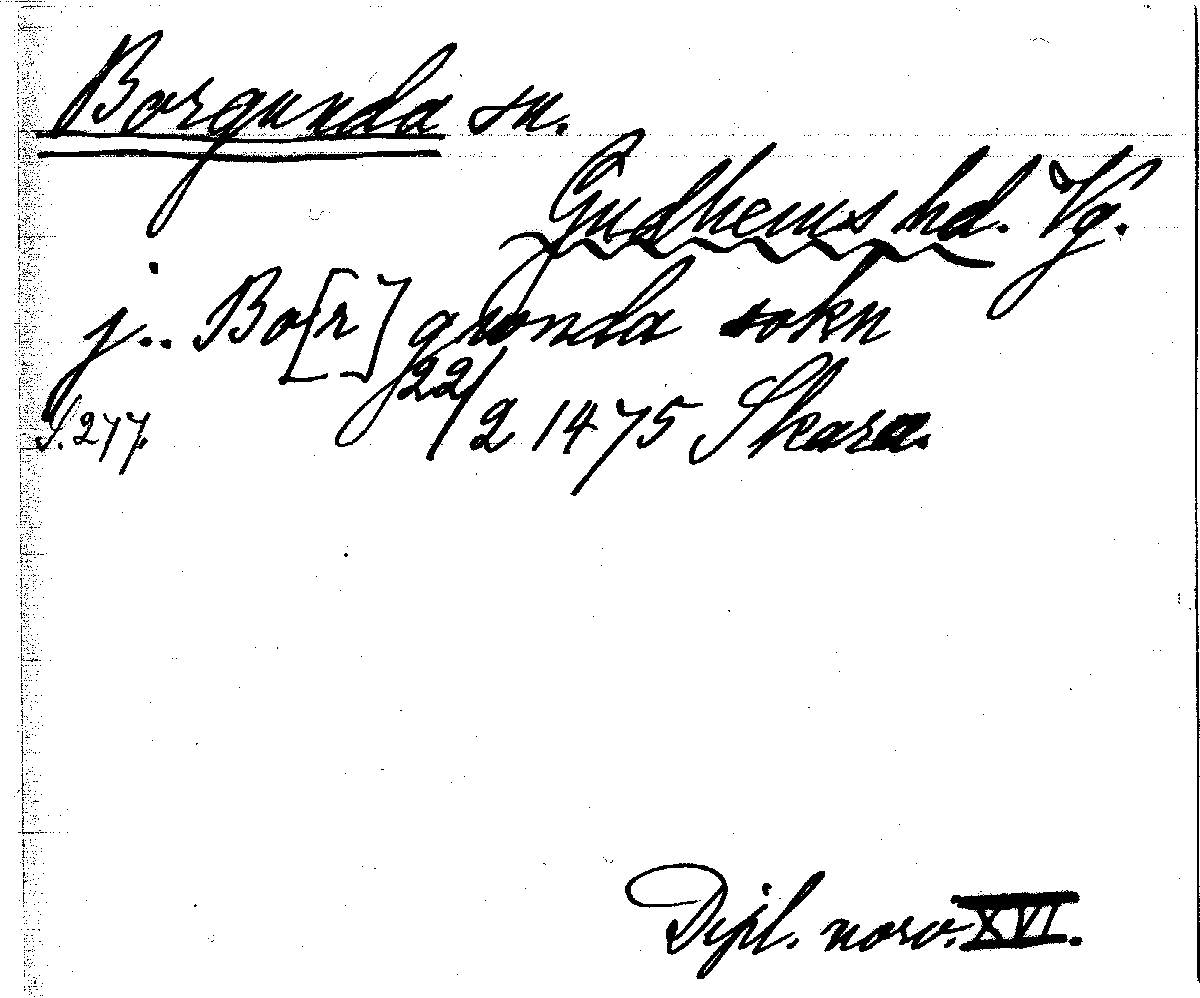 Borgunda sn.
Gudhems hd. Vg.
j.. Bo[r]gwnda sokn
S. 277. 22/2 1475 Skara.
Dipl. norv. XVI.